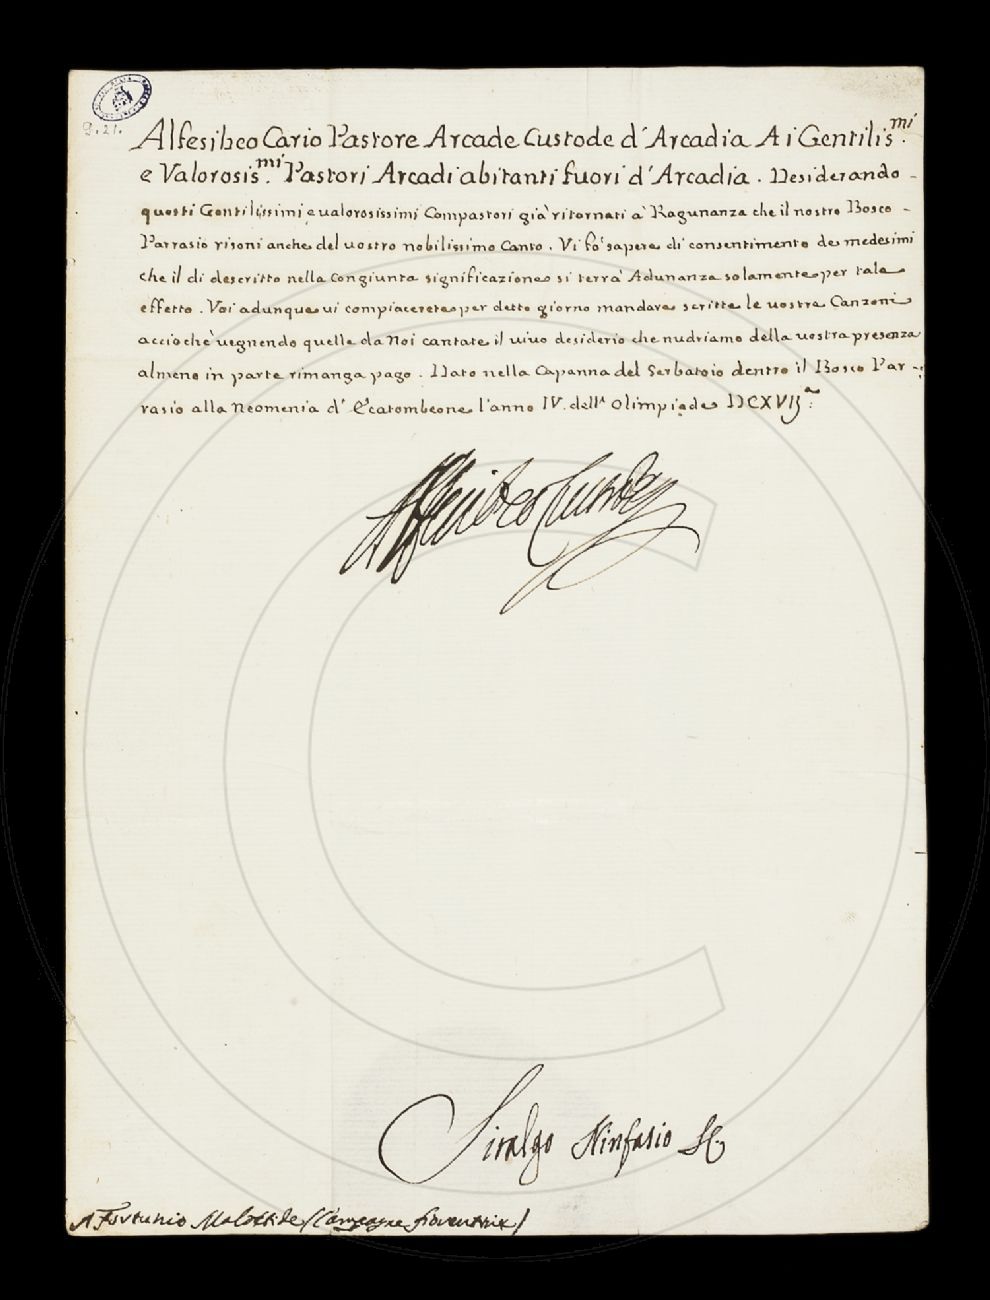 9.21.
Alfesibeo Cario Pastore Arcade Custode d'Arcadia Ai Gentilis.mi
e Valorosis.mi Pastori Arcadi abitanti fuori d'Arcadia. Desiderando
questi Gentilissimi e ualorosissimi Compastori già ritornati à Ragunanza che il nostro Bosco
Parrasio risoni anche del uostro nobilissimo Canto. Vi fò sapere di consentimento de medesimi
che il di descritto nella Congiunta significazione si terrà Adunanza solamente per tale
effetto. Voi adunque ui compiacerete per detto giorno mandare scritte le uostre Canzoni
acciochè uegnendo quelle da Noi cantate il uiuo desiderio che nudriamo della uostra presenza
almeno in parte rimanga pago. Dato nella Capanna del Serbatoio dentro il Bosco Par-
rasio alla Neomenia d'Ecatombeone l'anno IV. dell' Olimpiade DCXVIJ.a
Alfesibeo Custode
Siralgo Ninfasio
A Fortunio (Campagne